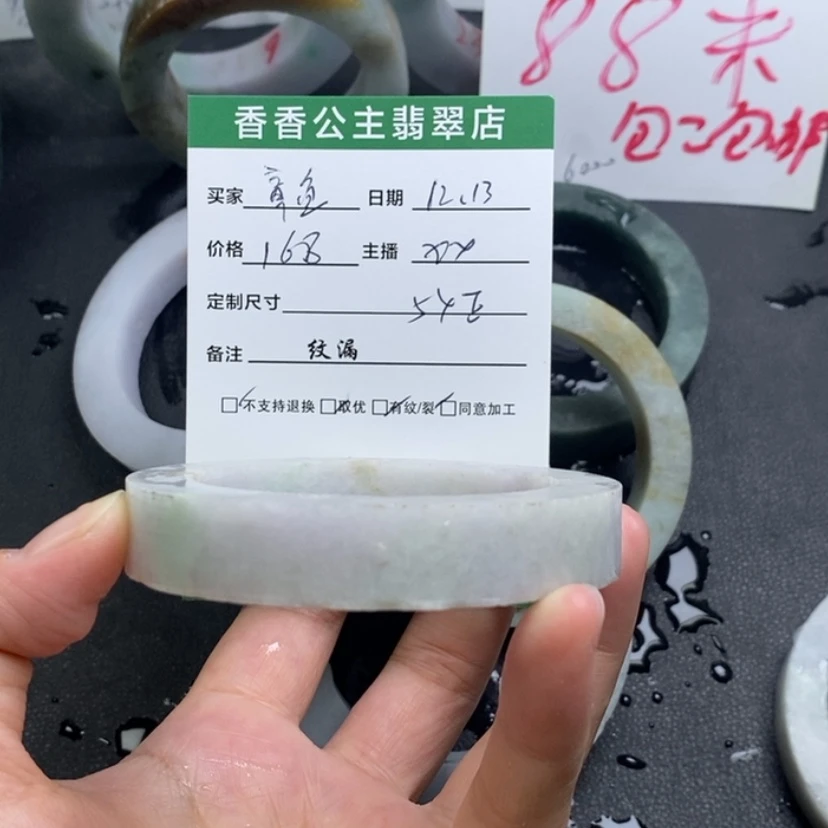 88米
包二包邮
香香公主翡翠店
买家 章鱼 日期 12.13
价格 168 主播 XX
定制尺寸 54正
备注 纹漏
不支持退换 取优 有纹/裂 同意加工